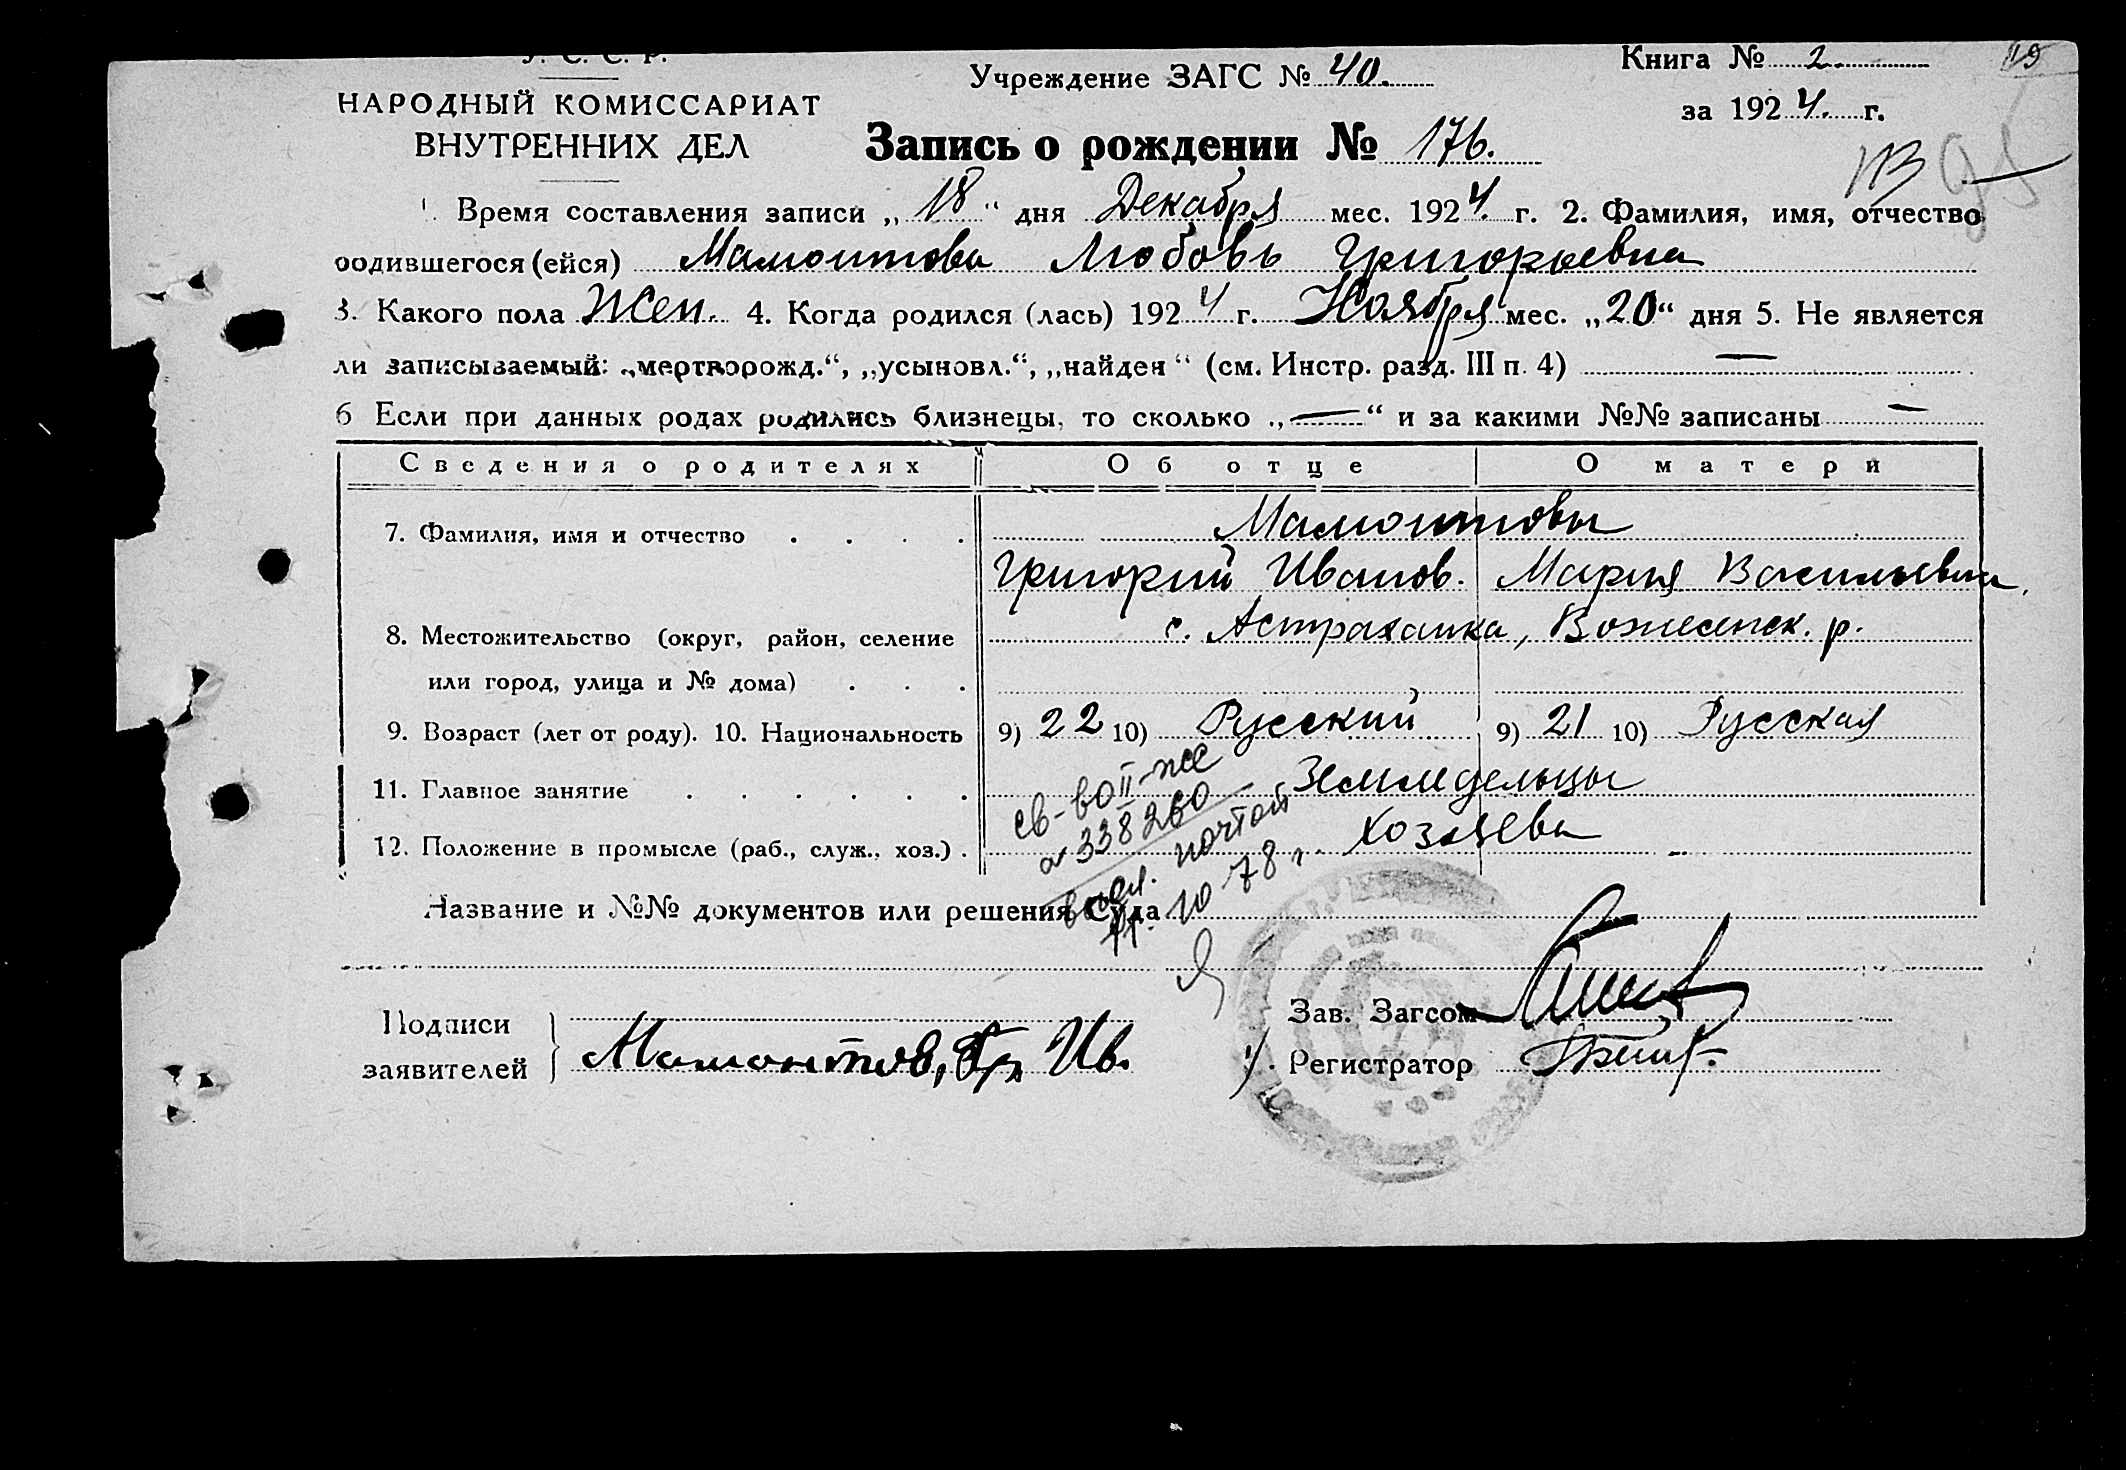 У. С. С. Р.
НАРОДНЫЙ КОМИССАРИАТ
ВНУТРЕННИХ ДЕЛ
Учреждение ЗАГС № 40.
Книга № 2.
за 1924. г.
19
Запись о рождении № 176.
1. Время составления записи „18“ дня Декабря мес. 1924. г. 2. Фамилия, имя, отчество
родившегося (ейся) Мамонтова Любовь Григорьевна
3. Какого пола Жен. 4. Когда родился (лась) 1924 г. Ноября мес. „20“ дня 5. Не является
ли записываемый: „мертворожд.“, „усыновл.“, „найден“ (см. Инстр. разд. III п. 4) —
6 Если при данных родах родились близнецы, то сколько „—“ и за какими №№ записаны —
Сведения о родителях Об отце О матери
7. Фамилия, имя и отчество . . . . Мамонтовы
Григорий Иванов. Мария Васильевна.
8. Местожительство (округ, район, селение с. Астраханка, Вознесенск. р.
или город, улица и № дома) . . .
9. Возраст (лет от роду). 10. Национальность 9) 22 10) Русский 9) 21 10) Русская
11. Главное занятие . . . . . . Земледельцы
12. Положение в промысле (раб., служ., хоз.) . Хозяева
св-во II-же
338260
почтой
10 78 г.
Название и №№ документов или решения Суда
Подписи
заявителей
Мамонтов, Гр. Ив.
Зав. Загсом
Регистратор